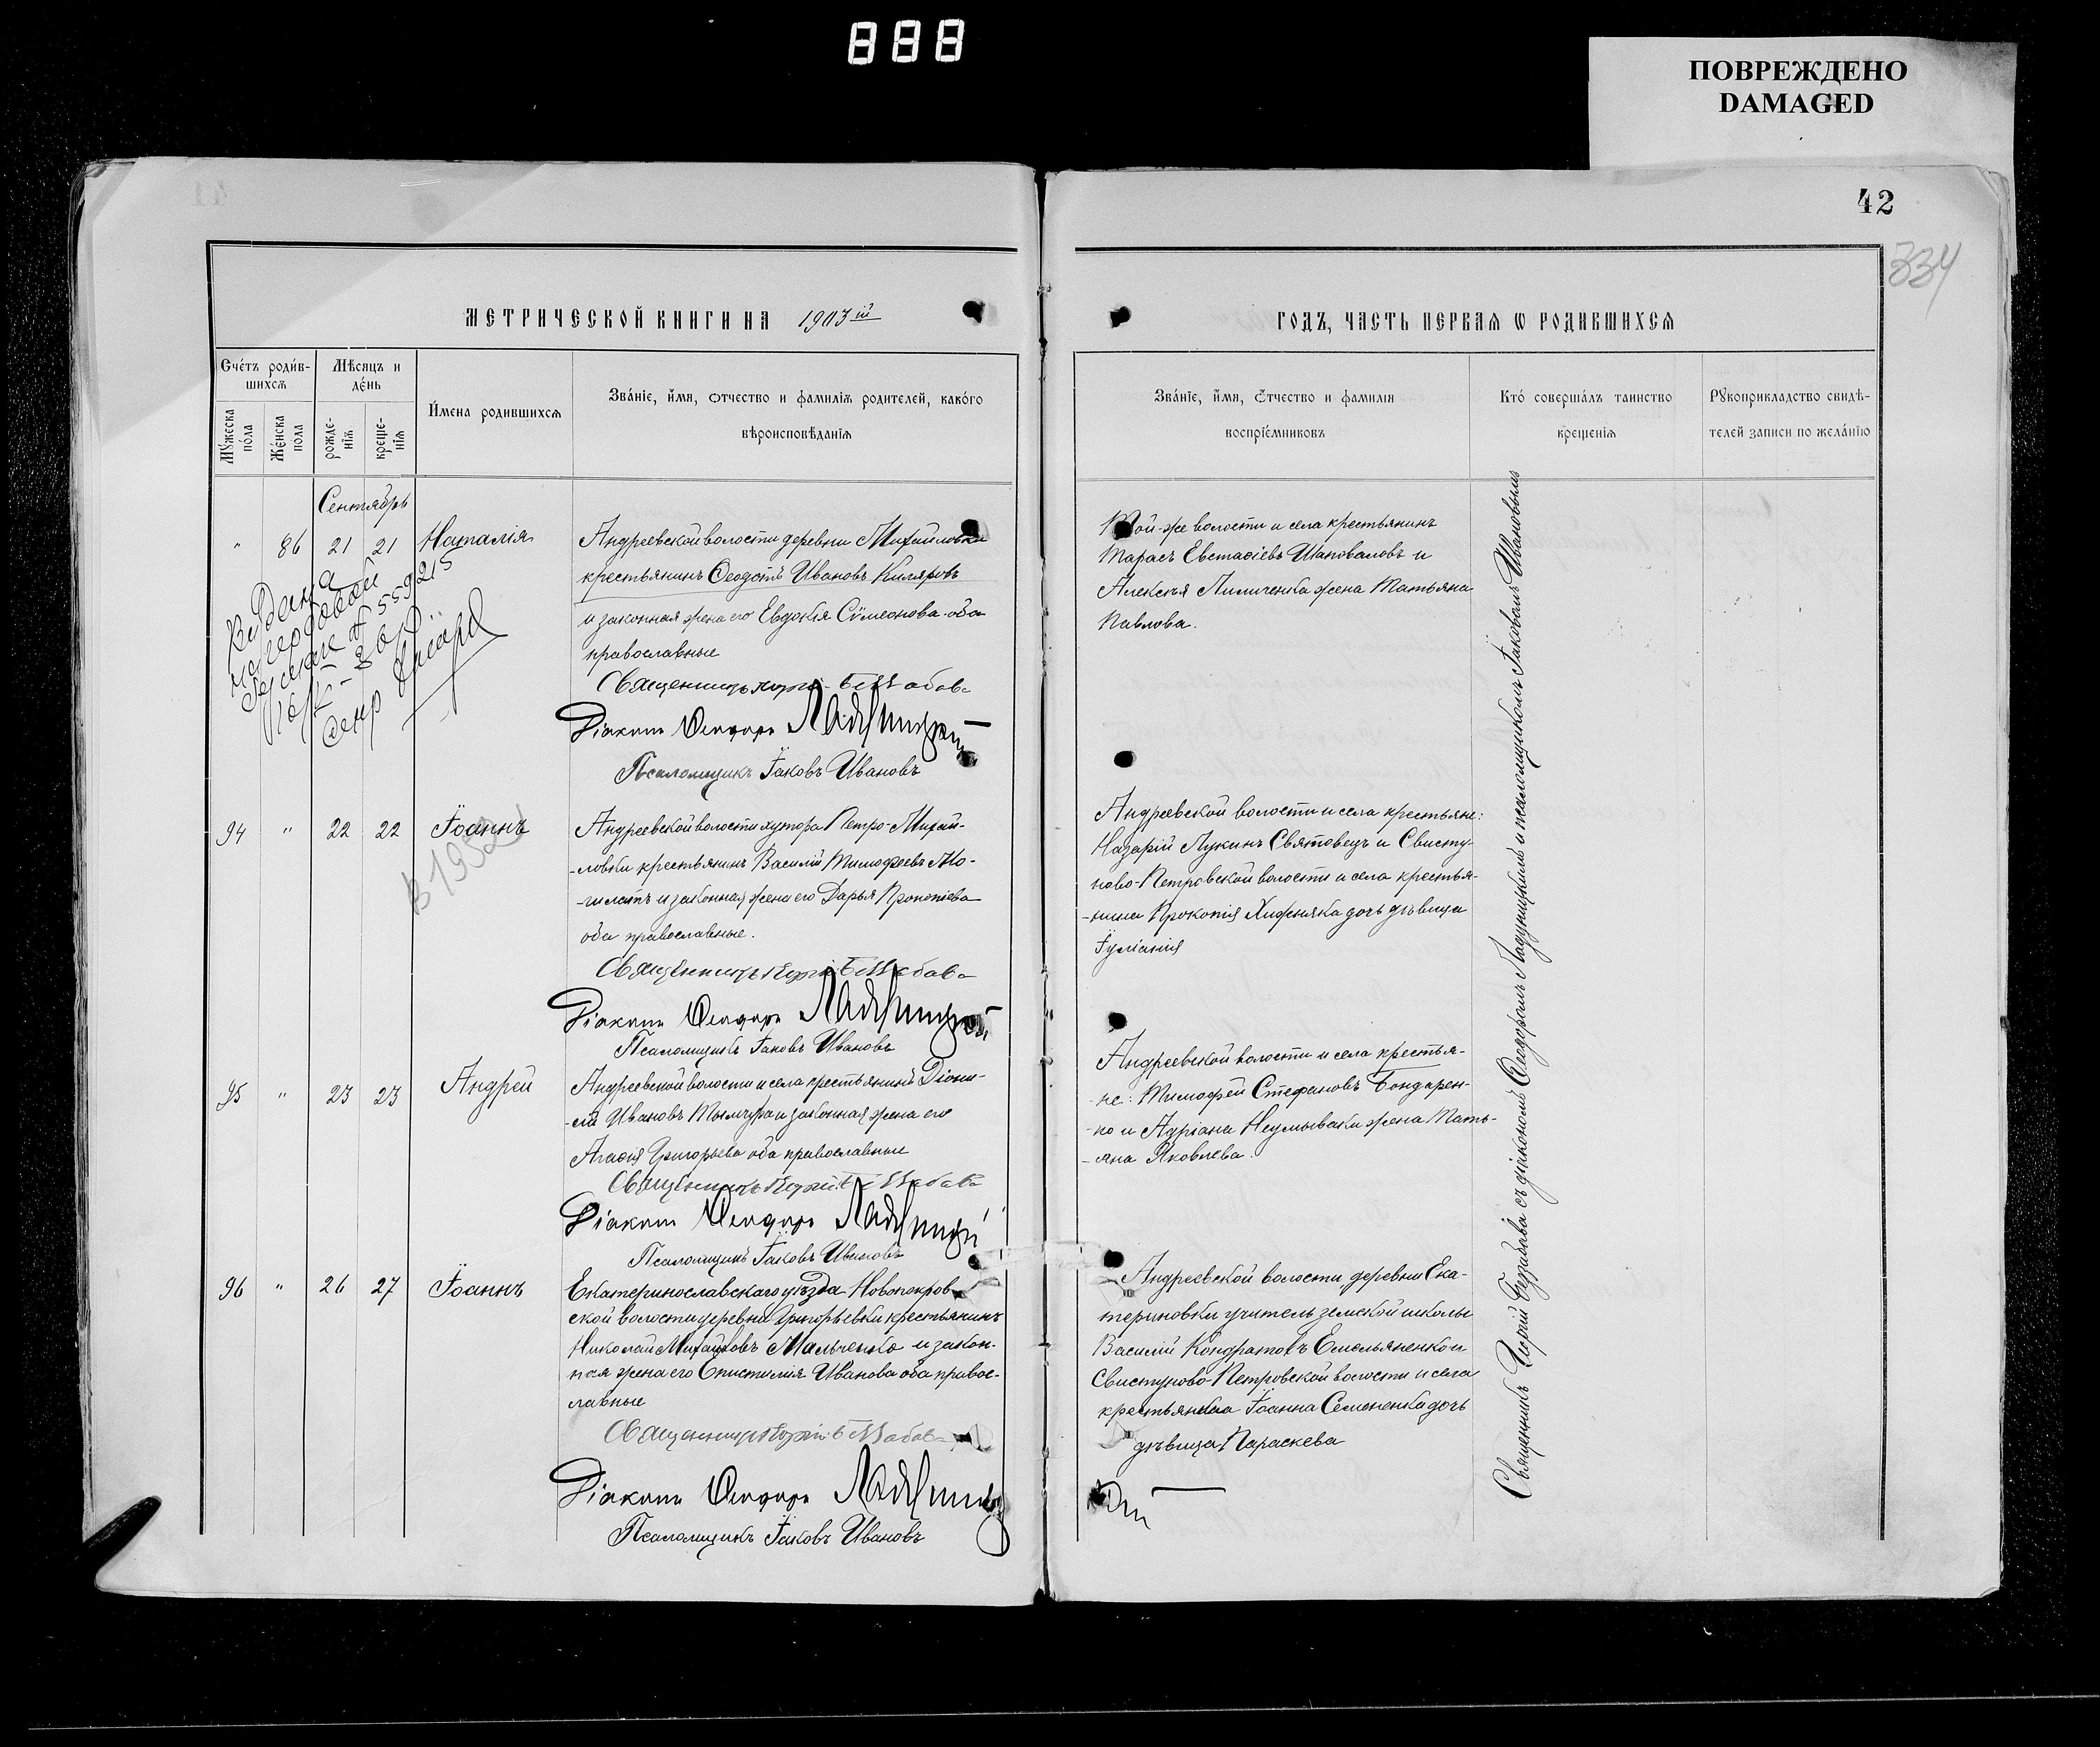 888
ПОВРЕЖДЕНО
DAMAGED
42
334
МЕТРИЧЕСКОЙ КНИГИ НА 1903 ій
ГОДЪ, ЧАСТЬ ПЕРВАЯ Ѡ РОДИВШИХСЯ
Счетъ родив-
шихся
Мѣсяцъ и
день
Мужеска
пола
Женска
пола
рожде-
нія
креще-
нія
Имена родившихся
Званіе, имя, отчество и фамилія родителей, какого
вѣроисповѣданія
Званіе, имя, отчество и фамилія
воспріемниковъ
Кто совершалъ таинство
крещенія
Рукоприкладство свидѣ-
телей записи по желанію
Сентябрь
" 86 21 21 Наталія
Андреевской волости деревни Михайловки
крестьянинъ Ѳеодотъ Ивановъ Киляровъ
и законная жена его Евдокія Сѵмеонова оба
православные
Священникъ
Діаконъ Ѳеодоръ Ладухицкій
Псаломщикъ Іаковъ Ивановъ
Той-же волости и села крестьянинъ
Тарасъ Евстаѳіевъ Шаповаловъ и
Алексѣя Пиличенка жена Татьяна
Павлова.
Выдана
559215
94 " 22 22 Іоаннъ
Андреевской волости хутора Петро-Михай-
-ловки крестьянинъ Василій Тимоѳеевъ Мо-
-гилатъ и законная жена его Дарья Прокопіева
оба православные.
Священникъ
Діаконъ Ѳеодоръ Ладухицкій
Псаломщикъ Іаковъ Ивановъ
Андреевской волости и села крестьяне:
Назарій Лукинъ Святовецъ и Свисту-
ново-Петровской волости и села крестья-
-нина Прокопія Хифняка дочь дѣвица
Іуліанія
95 " 23 23 Андрей
Андреевской волости и села крестьянинъ Діони-
-сій Ивановъ и законная жена его
Агаѳія Григорьева оба православные
Священникъ
Діаконъ Ѳеодоръ Ладухицкій
Псаломщикъ Іаковъ Ивановъ
Андреевской волости и села крестья-
-не: Тимофей Стефановъ Бондарен-
-ко и Адріана Неумываки жена Тать-
-яна Яковлева.
96 " 26 27 Іоаннъ
Екатеринославскаго уѣзда Новопокров-
ской волости деревни Григорьевки крестьянинъ
Николай Михайловъ Мальченко и закон-
ная жена его Епистимія Иванова оба правос-
лавные
Священникъ
Діаконъ Ѳеодоръ Ладухицкій
Псаломщикъ Іаковъ Ивановъ
Андреевской волости, деревни Ека-
териновки учитель земской школы
Василій Кондратовъ Емельяненко и
Свистуново-Петровской волости и села
крестьянина Іоанна Семененка дочь
дѣвица Параскева
Священникъ Георгій Беззабава съ діакономъ Ѳеодоромъ Ладухицкимъ и псаломщикомъ Іаковомъ Ивановымъ